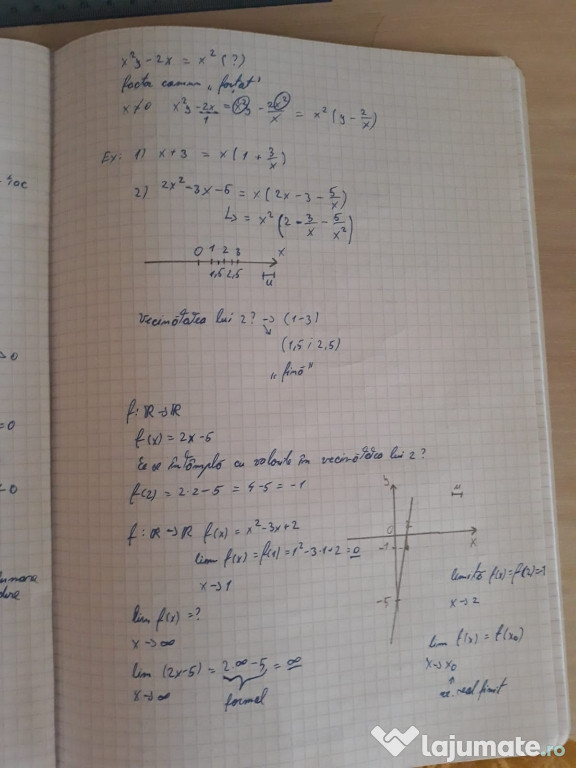 x²y - 2x = x² (?)
factor comun „forțat”
x≠0 x²y - 2x/1 = x²y - 2x²/x = x² (y - 2/x)
Ex: 1) x + 3 = x (1 + 3/x)
2) 2x² - 3x - 5 = x (2x - 3 - 5/x)
↳ = x² (2 - 3/x - 5/x²)
0 1 2 3 x
1,5 2,5 u
vecinătatea lui 2? → (1-3)
↘ (1,5 ; 2,5)
„fină”
f: ℝ→ℝ
f(x) = 2x - 5
Ce se întâmplă cu valorile în vecinătatea lui 2?
f(2) = 2·2 - 5 = 4 - 5 = -1
f: ℝ→ℝ f(x) = x² - 3x + 2
lim f(x) = f(1) = 1² - 3·1 + 2 = 0
x→1
lim f(x) = ?
x→∞
lim (2x - 5) = 2·∞ - 5 = ∞
x→∞ formal
y
u
0 2
-1 x
-5
limită f(x) = f(2) = -1
x→2
lim f(x) = f(x₀)
x→x₀
↑
nr. real finit
lajumate.ro